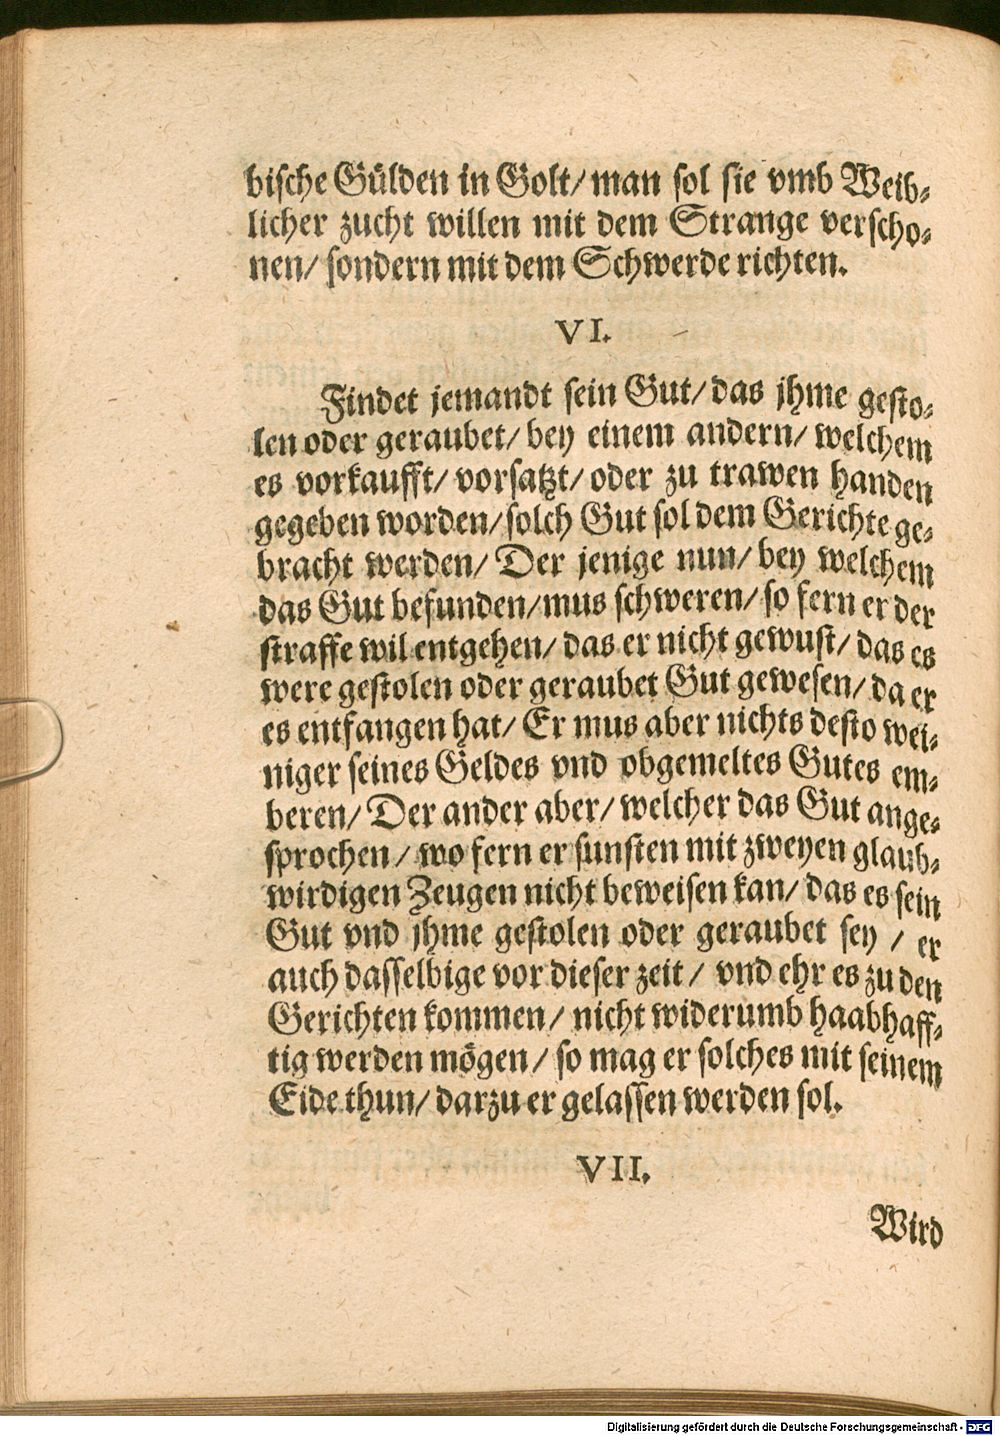 bische Gülden in Golt/ man sol sie vmb Weib-
licher zucht willen mit dem Strange verscho-
nen/ sondern mit dem Schwerde richten.
VI.
Findet jemandt sein Gut/ das jhme gesto-
len oder geraubet/ bey einem andern/ welchem
es vorkaufft/ vorsatzt/ oder zu trawen handen
gegeben worden/ solch Gut sol dem Gerichte ge-
bracht werden/ Der jenige nun/ bey welchem
das Gut befunden/ mus schweren/ so fern er der
straffe wil entgehen/ das er nicht gewust/ das es
were gestolen oder geraubet Gut gewesen/ da er
es entfangen hat/ Er mus aber nichts desto wei-
niger seines Geldes vnd obgemeltes Gutes em-
beren/ Der ander aber/ welcher das Gut ange-
sprochen/ wo fern er sunsten mit zweyen glaub-
wirdigen Zeugen nicht beweisen kan/ das es sein
Gut vnd jhme gestolen oder geraubet sey / er
auch dasselbige vor dieser zeit/ vnd ehr es zu den
Gerichten kommen/ nicht widerumb haabhaff-
tig werden mögen/ so mag er solches mit seinem
Eide thun/ darzu er gelassen werden sol.
VII.
Wird
Digitalisierung gefördert durch die Deutsche Forschungsgemeinschaft - DFG